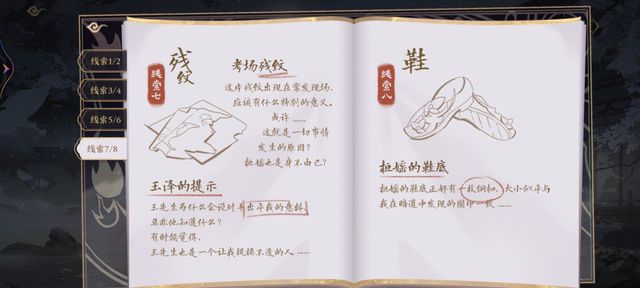 线索1/2
线索3/4
线索5/6
线索7/8
残纹
线索七
考场残纹
这片残纹出现在案发现场，
应该有什么特别的意义。
或许……
这就是一切事情
发生的原因？
桓媱也是身不由己？
王泽的提示
王先生为什么会说对手出乎我的意料，
莫非他知道什么？
有时候觉得，
王先生也是一个让我捉摸不透的人……
鞋
线索八
桓媱的鞋底
桓媱的鞋底正好有一枚铜扣，大小似乎与
我在暗道中发现的圆印一致……